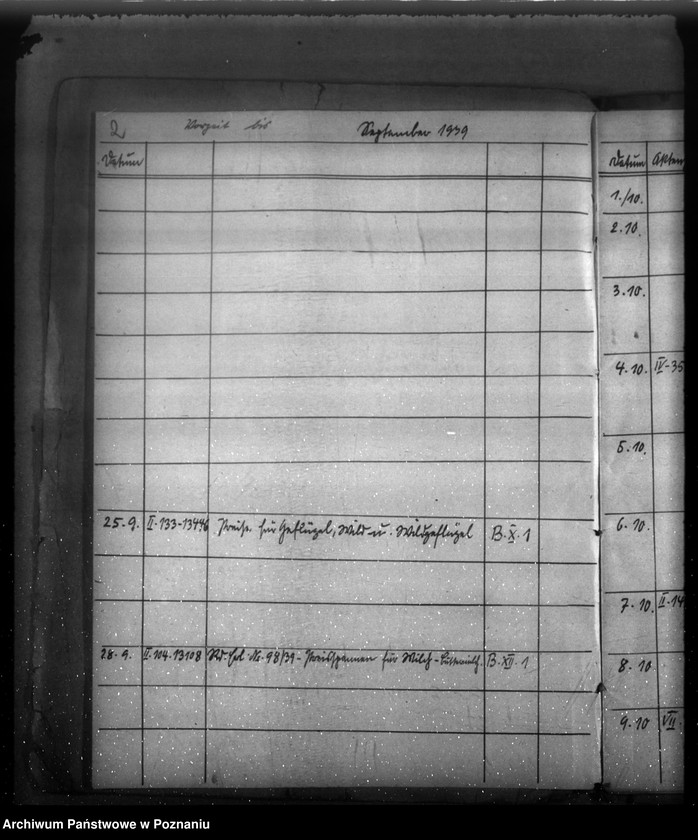 2 Vorzeit bis September 1939
Datum
25.9. II-133-13446 Preise für Geflügel, Wild u. Wildgeflügel B.X.1
28.9. II-104-13108 Rd. Erl. Nr. 98/39 - Preisspannen für Milch - Buttermilch. B.XII.1
Datum Akten
1./10.
2.10.
3.10.
4.10. IV-35
5.10.
6.10.
7.10. II-14
8.10
9.10 VII
Archiwum Państwowe w Poznaniu